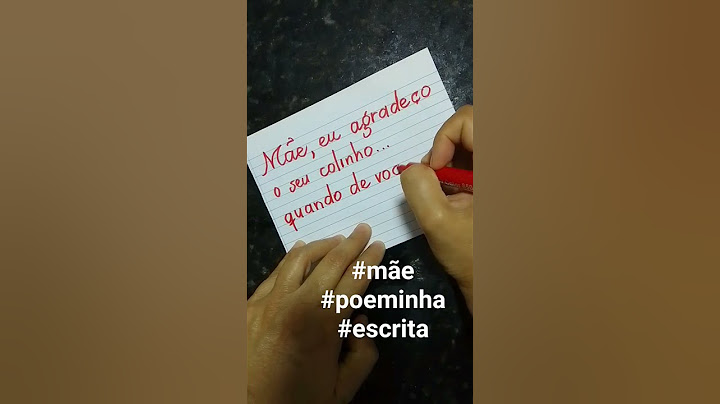 Mãe, eu agradeço
o seu colinho...
quando de voc
#mãe
#poeminha
#escrita